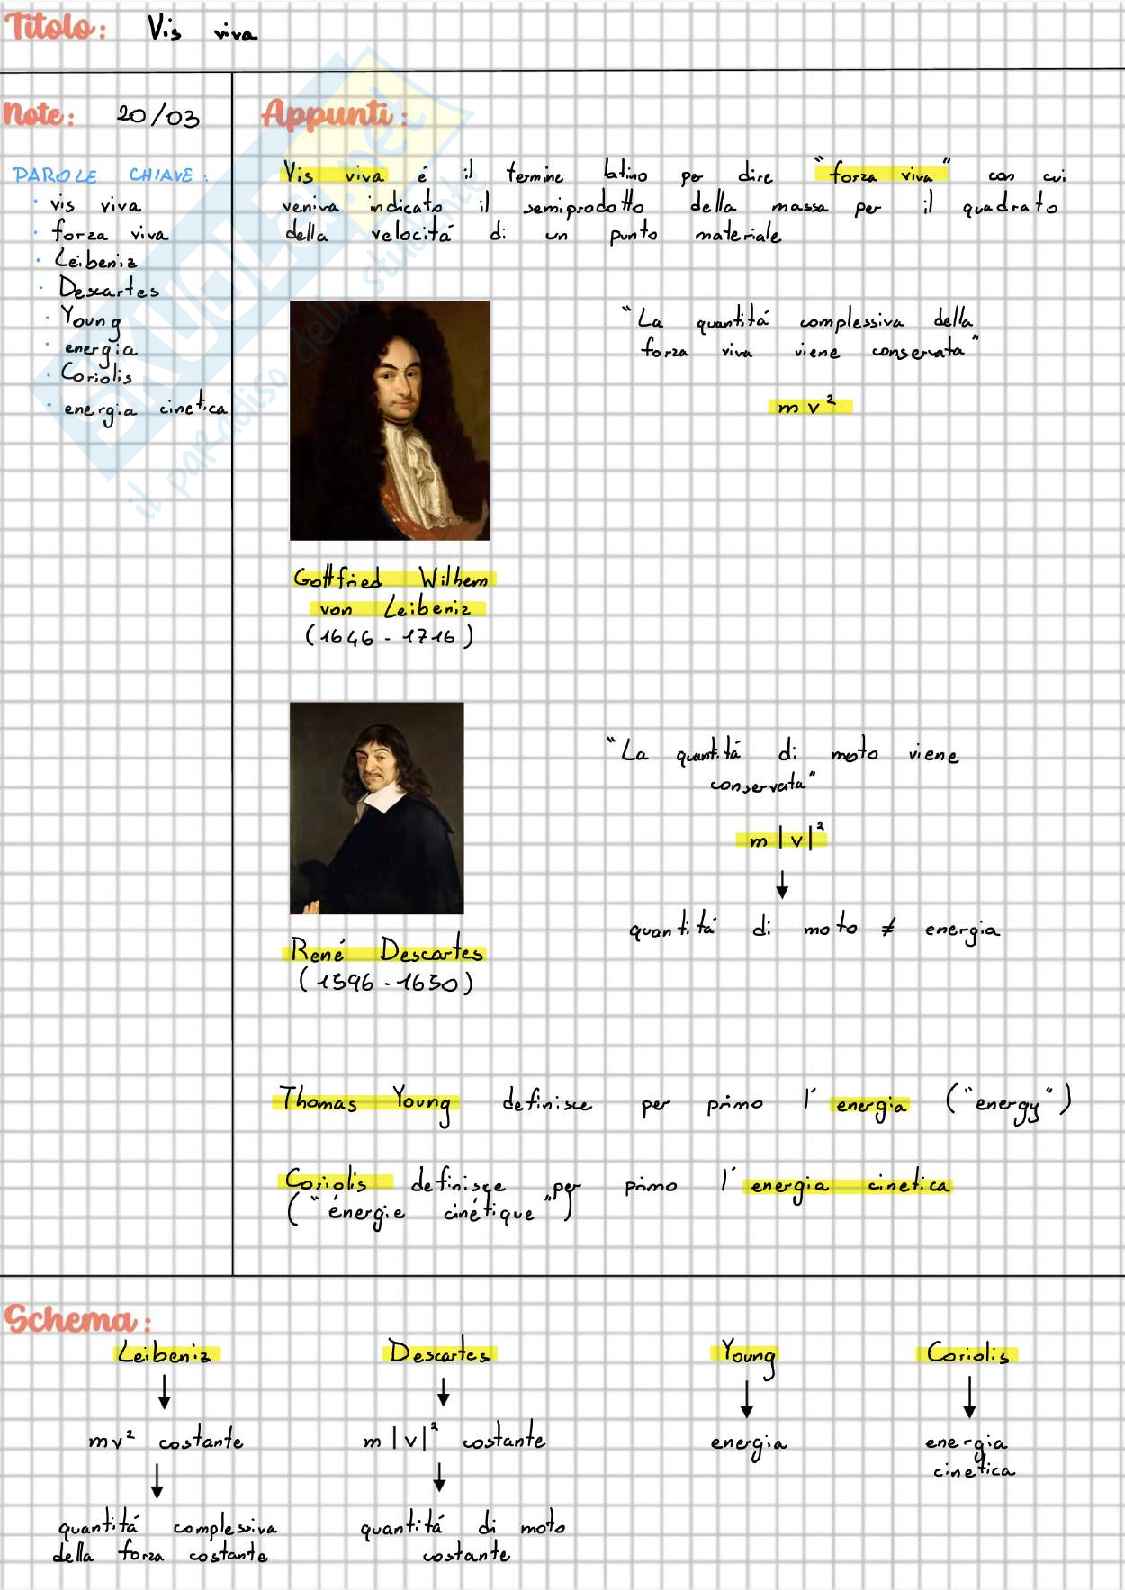 Titolo: Vis viva
Note: 20/03
PAROLE CHIAVE:
· vis viva
· forza viva
· Leibeniz
· Descartes
· Young
· energia
· Coriolis
· energia cinetica
Appunti:
Vis viva é il termine latino per dire "forza viva" con cui
veniva indicato il semiprodotto della massa per il quadrato
della velocitá di un punto materiale
"La quantitá complessiva della
forza viva viene conservata"
mv²
Gottfried Wilhem
von Leibeniz
(1646 - 1716)
"La quantitá di moto viene
conservata"
m|v|²
↓
quantitá di moto ≠ energia
René Descartes
(1596 - 1650)
Thomas Young definisce per primo l'energia ("energy")
Coriolis definisce per primo l'energia cinetica
("énergie cinétique")
Schema:
Leibeniz Descartes Young Coriolis
↓ ↓ ↓ ↓
mv² costante m|v|² costante energia energia
cinetica
↓ ↓
quantitá complessiva quantitá di moto
della forza costante costante